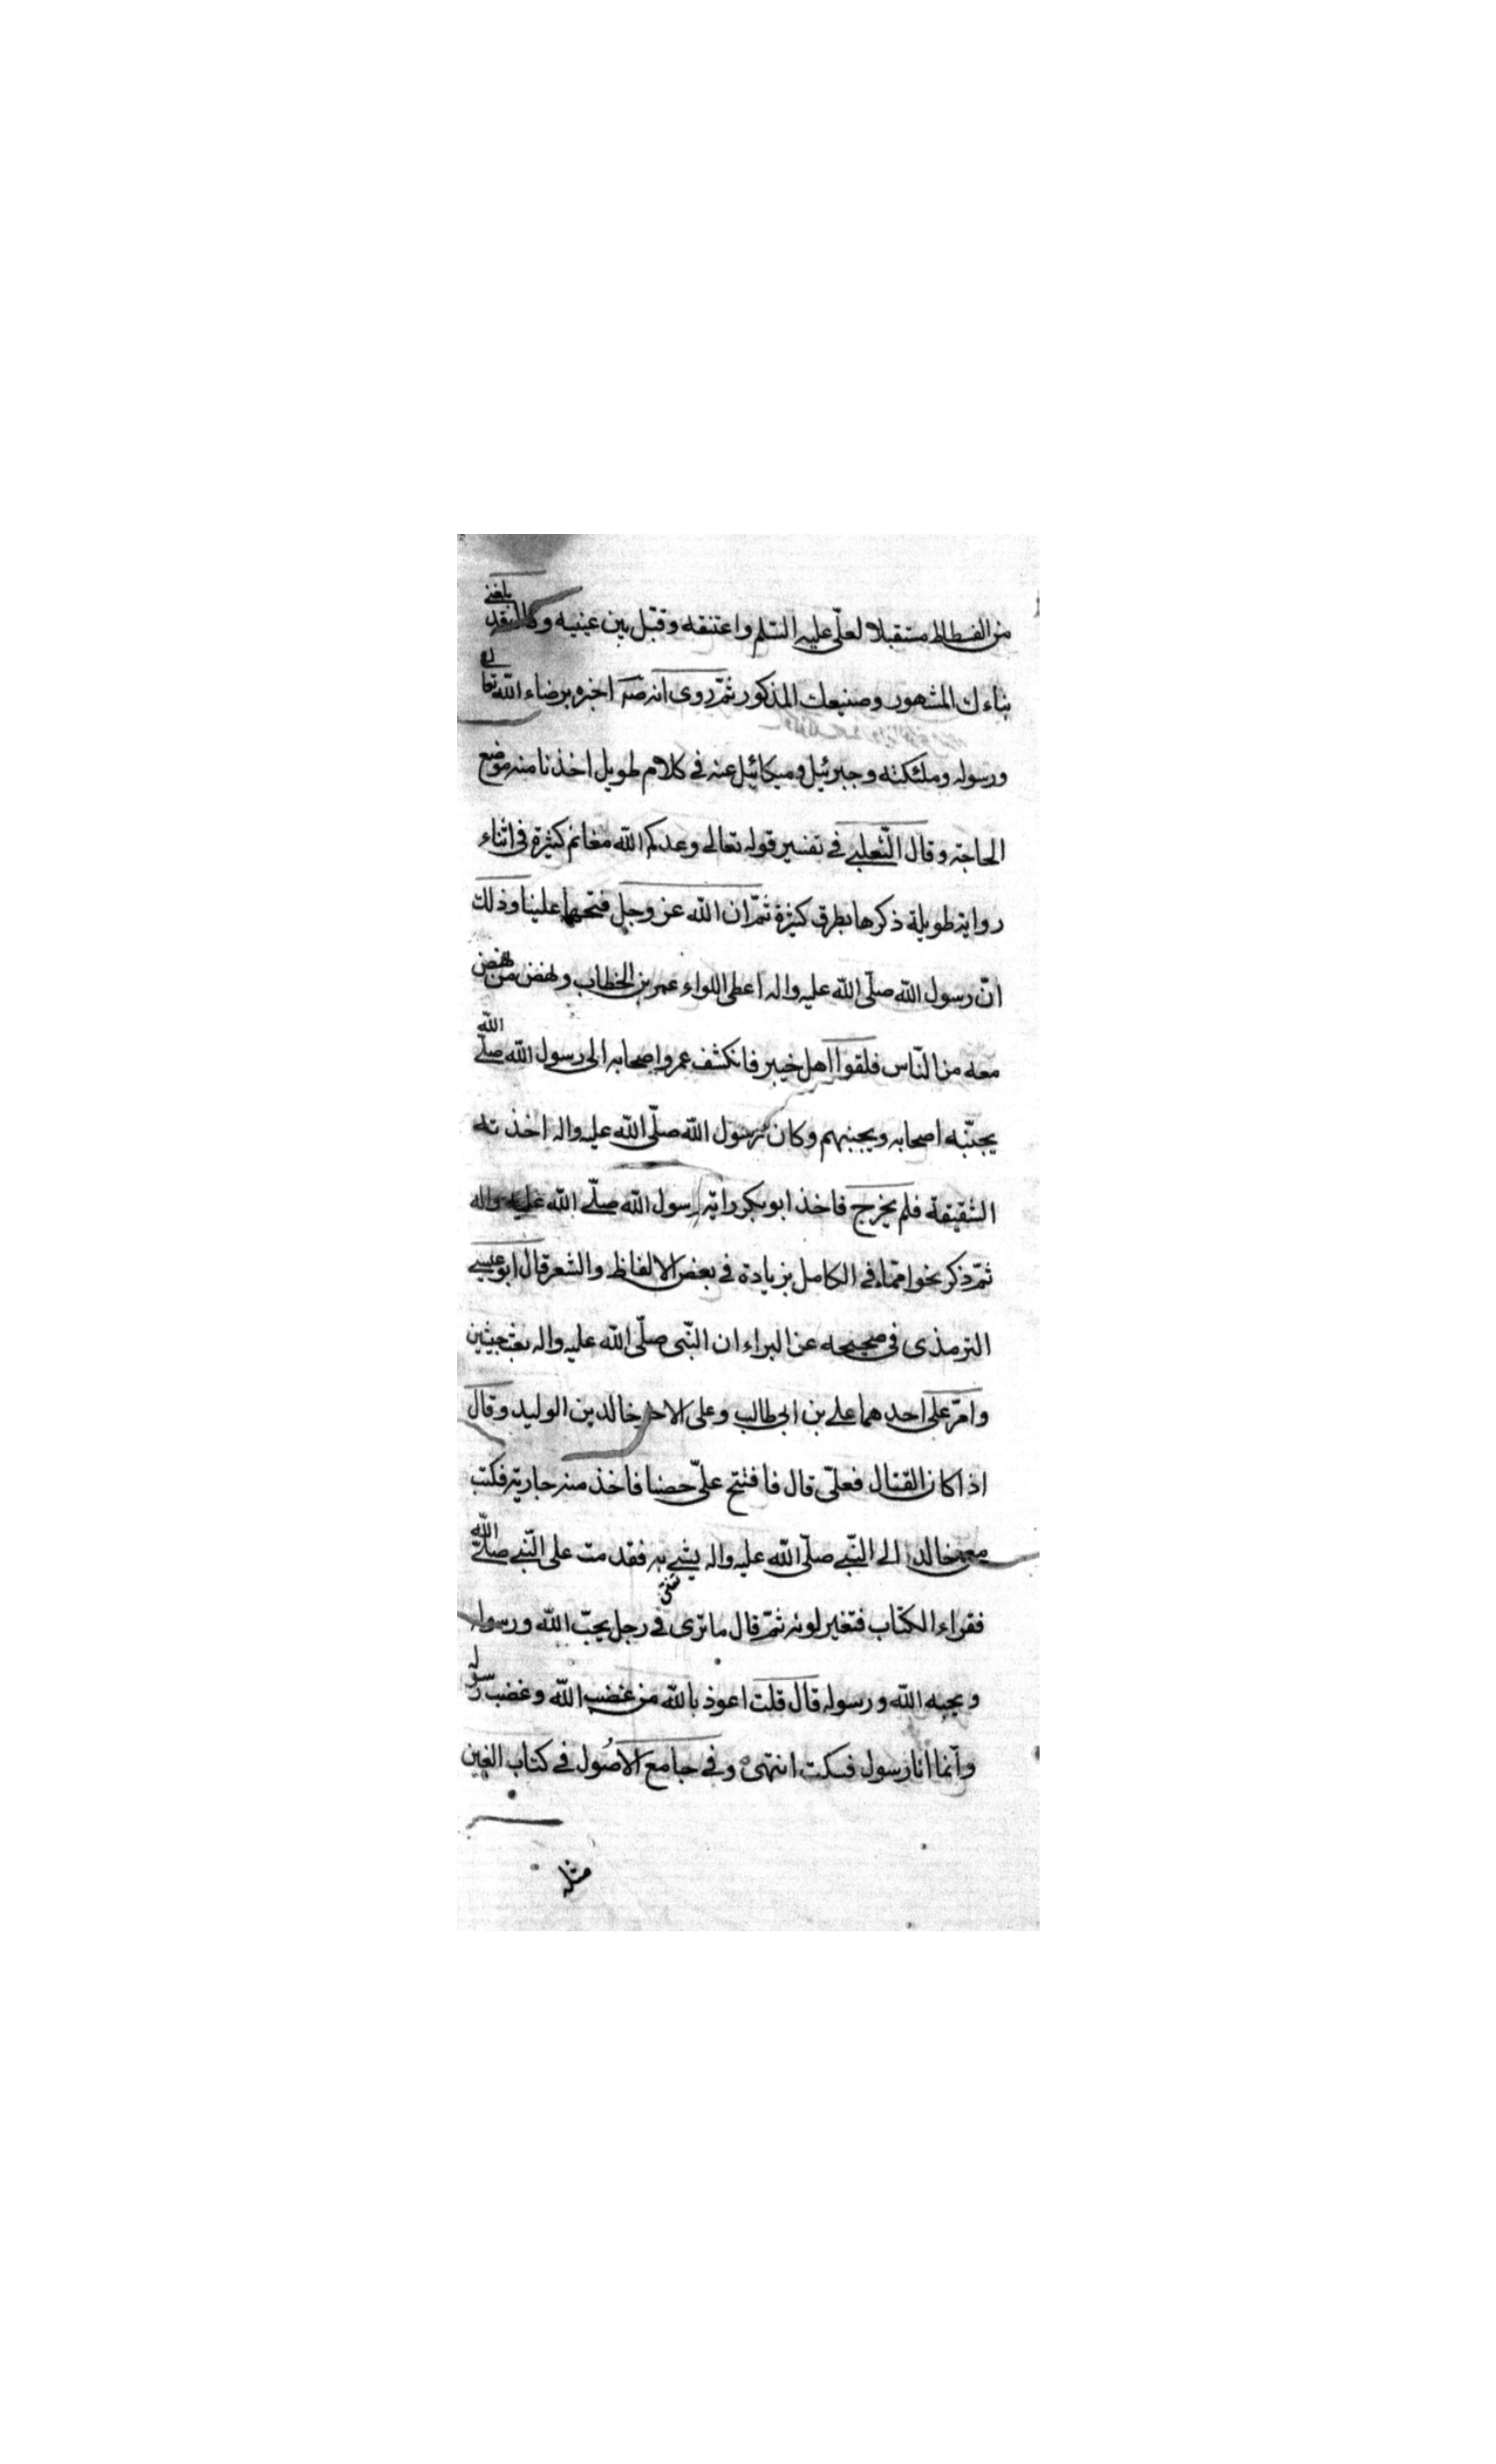 من الفسطاط مستقبلا لعلّي عليه السّلم واعتنقه وقبّل بين عينيه وقال قد بلغني
بناءك المشهور وصنيعك المذكور ثمّ روى انه صه اخبره برضاء الله تعالى
ورسوله وملئكته وجبرئيل وميكائيل عنه في كلام طويل اخذنا منه موضع
الحاجة وقال الثّعلبي في تفسير قوله تعالى وعدكم الله مغانم كثيرة في اثناء
رواية طويلة ذكرها بطرق كثيرة ثمّ ان الله عز وجل فتحها علينا وذلك
انّ رسول الله صلّى الله عليه واله اعطى اللواء عمر بن الخطاب ونهض من نهض
معه من النّاس فلقوا اهل خيبر فانكشف عمر واصحابه الى رسول الله صلّى الله
يجبّنه اصحابه ويجبنهم وكان رسول الله صلّى الله عليه واله اخذته
الشقيقة فلم يخرج فاخذ ابو بكر راية رسول الله صلّى الله عليه واله
ثمّ ذكر نحوا ممّا في الكامل بزيادة في بعض الالفاظ والشعر قال ابو عيسى
الترمذى في صحيحه عن البراء ان النّبى صلّى الله عليه واله بعث جيشين
وامّر على احدهما علي بن ابي طالب وعلى الاخر خالد بن الوليد وقال
اذا كان القتال فعلّي قال فافتتح علّي حصنا فاخذ منه جارية فكتب
معي خالد الى النّبي صلّى الله عليه واله يشي به فقدمت على النّبي صلّى الله
فقراء الكتاب فتغير لونه ثمّ قال ما ترى في رجل يحبّ الله ورسوله
ويحبه الله ورسوله قال قلت اعوذ بالله من غضب الله وغضب رسوله
وانّما انا رسول فسكت انتهى وفي جامع الاصُول في كتاب الغين
مثله